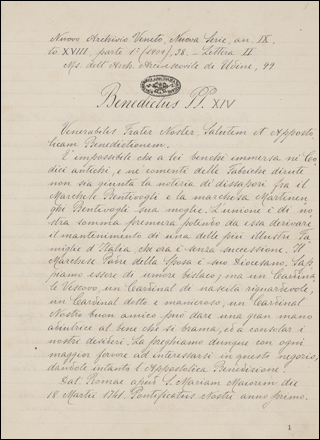 Nuovo Archivio Veneto, Nuova Serie, an. IX.
to XVIII, parte 1ª (1909), 38. - Lettera II
Ms. dell'Arch. Arcivescovile de Udine, 99
Benedictus PP. XIV
Venerabilis Frater Noster, Salutem et Aposto
licam Benedictionem.
È impossibile che a lei benchè immersa ne' Co
dici antichi, e ne' comente delle Fabriche dirute
non sia giunta la notizia di dissapori fra il
Marchese Bentivogli e la marchesa Martinen
ghi Bentivogli sua moglie. L'unione è di no
stra somma premura potendo da essa derivare
il mantenimento di una delle più illustri Fa
miglie d'Italia, che ora è senza successione. Il
Marchese Padre della Sposa è suo Diocesano. Sap
piamo essere di umore bislacco; ma un Cardina
le Vescovo, un Cardinal di nascita riguardevole,
un Cardinal dotto e manieroso, un Cardinal
Nostro buon amico può dare una gran mano
al bene che si brama, ed a consolar i
nostri desideri. La preghiamo dunque con ogni
maggior fervore ad interessarsi in questo negozio,
dandole intanto l'Apostolica Benedizione.
Dat. Romae apud S. Mariam Maiorem die
18 Martii 1741. Pontificatus Nostri anno primo.
1